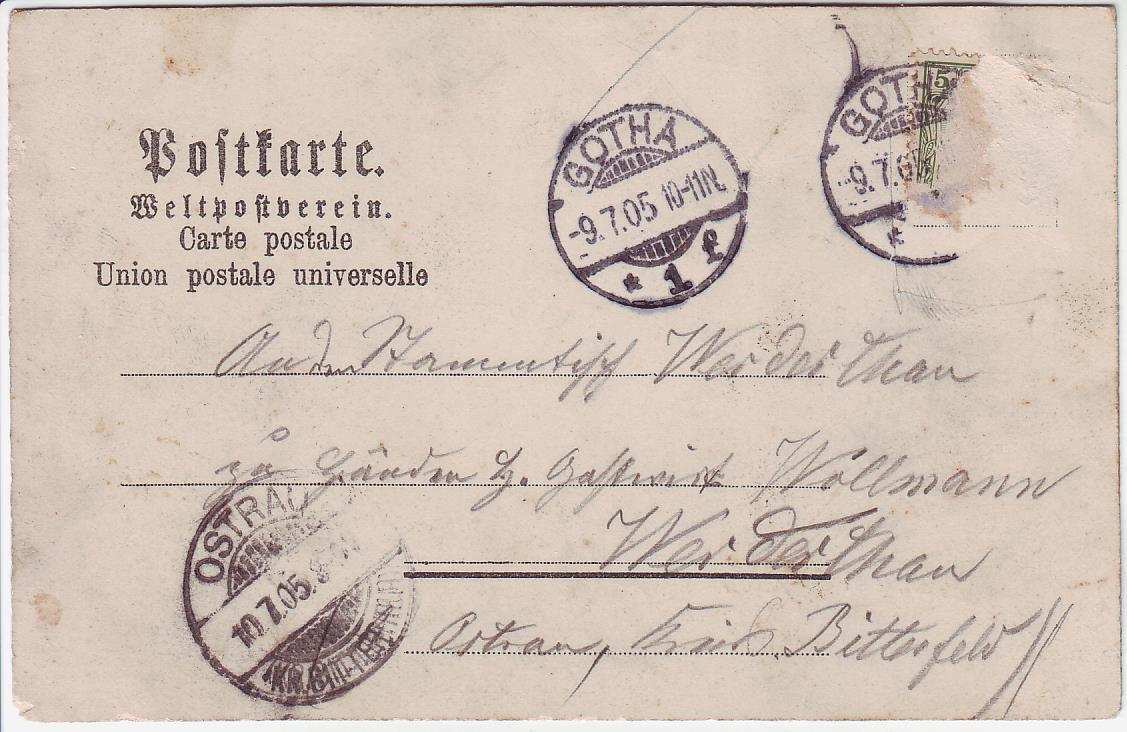 Postkarte.
Weltpostverein.
Carte postale
Union postale universelle
GOTHA
-9.7.05 10-11N.
* 1 f
GOTHA
-9.7.05
*
5
An den Stammtisch Werderthau
zu Händen H. Gastwirt Wöllmann
Werderthau
Ostrau, Kreis Bitterfeld
OSTRAU
10.7.05.
(KR. BITTERFELD)